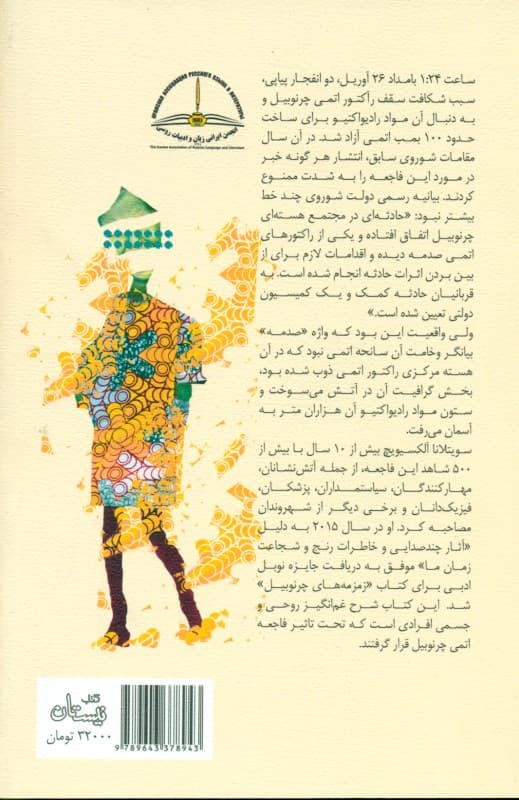 ساعت ۱:۲۴ بامداد ۲۶ آوریل، دو انفجار پیاپی،
سبب شکافت سقف رآکتور اتمی چرنوبیل و
به دنبال آن مواد رادیواکتیو برای ساخت
حدود ۱۰۰ بمب اتمی آزاد شد. در آن سال
مقامات شوروی سابق، انتشار هر گونه خبر
در مورد این فاجعه را به شدت ممنوع
کردند. بیانیه رسمی دولت شوروی چند خط
بیشتر نبود: «حادثه‌ای در مجتمع هسته‌ای
چرنوبیل اتفاق افتاده و یکی از راکتورهای
اتمی صدمه دیده و اقدامات لازم برای از
بین بردن اثرات حادثه انجام شده است. به
قربانیان حادثه کمک و یک کمیسیون
دولتی تعیین شده است.»
ولی واقعیت این بود که واژه «صدمه»
بیانگر وخامت آن سانحه اتمی نبود که در آن
هسته مرکزی راکتور اتمی ذوب شده بود،
بخش گرافیت آن در آتش می‌سوخت و
ستون مواد رادیواکتیو آن هزاران متر به
آسمان می‌رفت.
سویتلانا آلکسیویچ بیش از ۱۰ سال با بیش از
۵۰۰ شاهد این فاجعه، از جمله آتش‌نشانان،
مهارکنندگان، سیاستمداران، پزشکان،
فیزیک‌دانان و برخی دیگر از شهروندان
مصاحبه کرد. او در سال ۲۰۱۵ به دلیل
«آثار چندصدایی و خاطرات رنج و شجاعت
زمان ما» موفق به دریافت جایزه نوبل
ادبی برای کتاب «زمزمه‌های چرنوبیل»
شد. این کتاب شرح غم‌انگیز روحی و
جسمی افرادی است که تحت تاثیر فاجعه
اتمی چرنوبیل قرار گرفتند.
انجمن ایرانی زبان و ادبیات روسی
The Iranian Association of Russian Language and Literature
کتاب
نیستان
۳۲۰۰۰ تومان
9 789643 378943